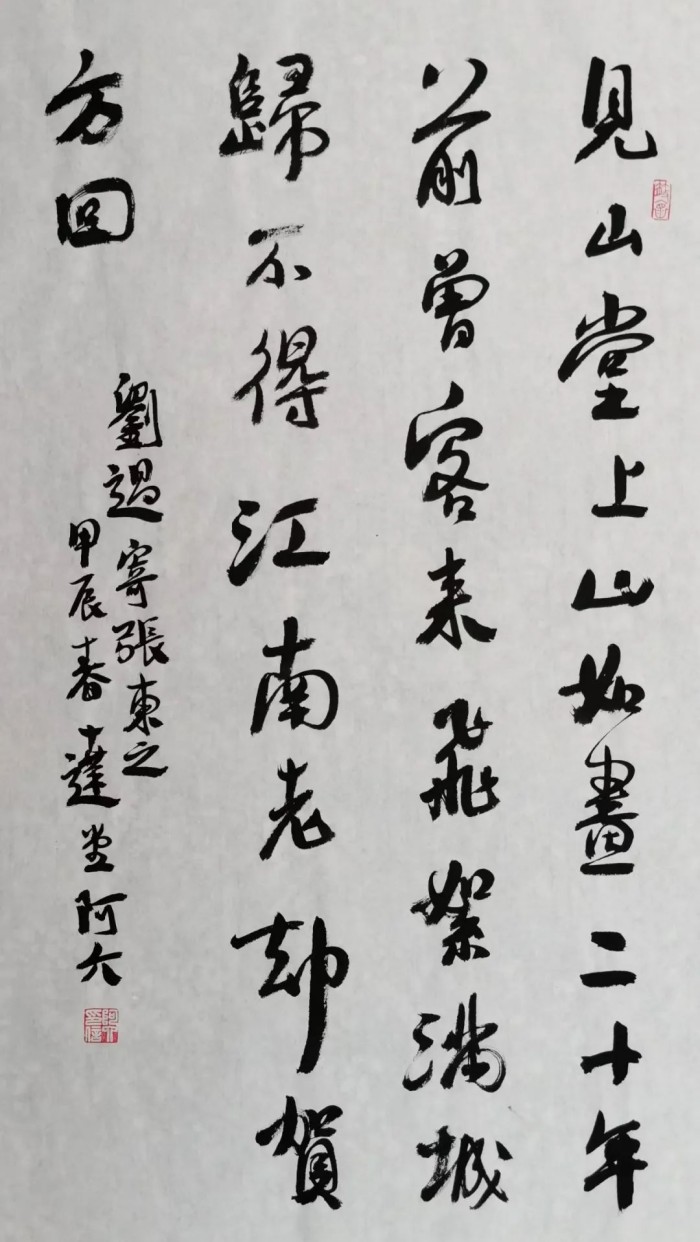 見山堂上山如畫二十年
前曾客来飛絮滿城
歸不得江南老却賀
方回
劉過寄張東之
甲辰春十達堂阿六